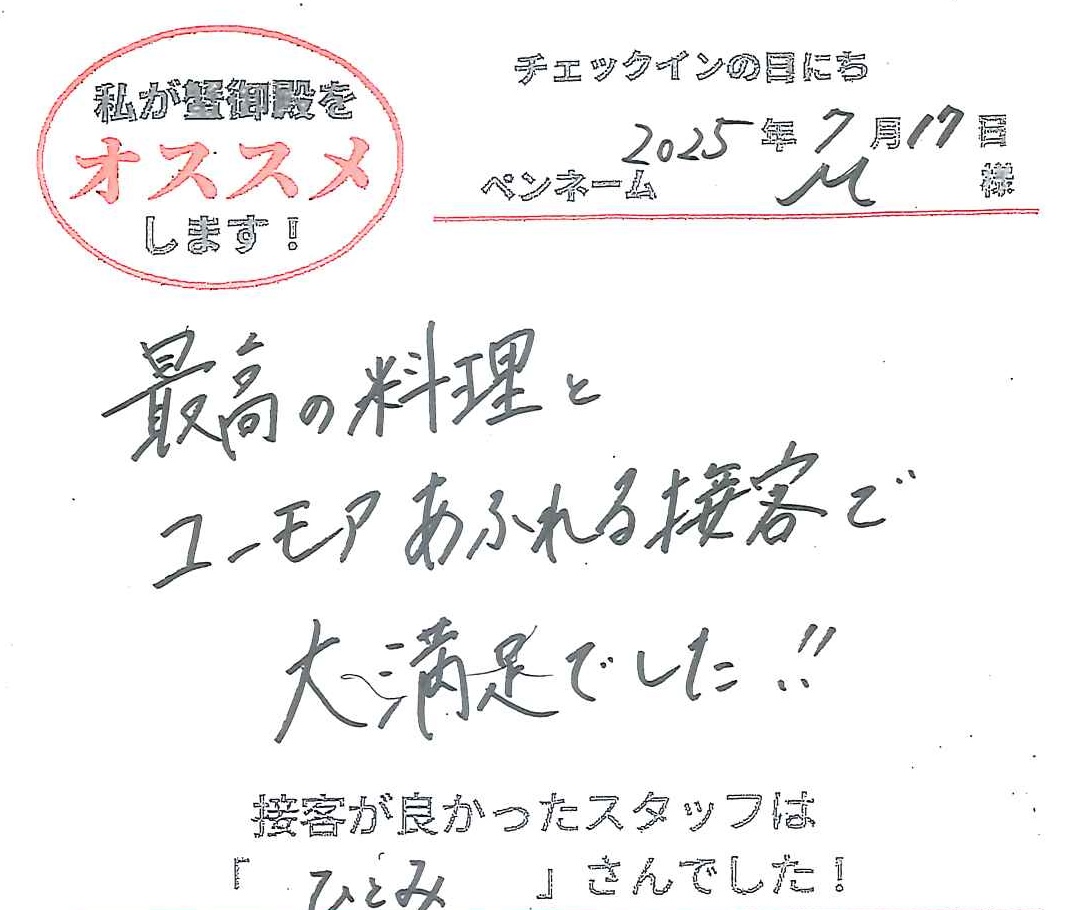 私が蟹御殿を
オススメ
します！
チェックインの日にち
2025年7月17日
ペンネーム M 様
最高の料理と
ユーモアあふれる接客で
大満足でした!!
接客が良かったスタッフは
「ひとみ」さんでした！